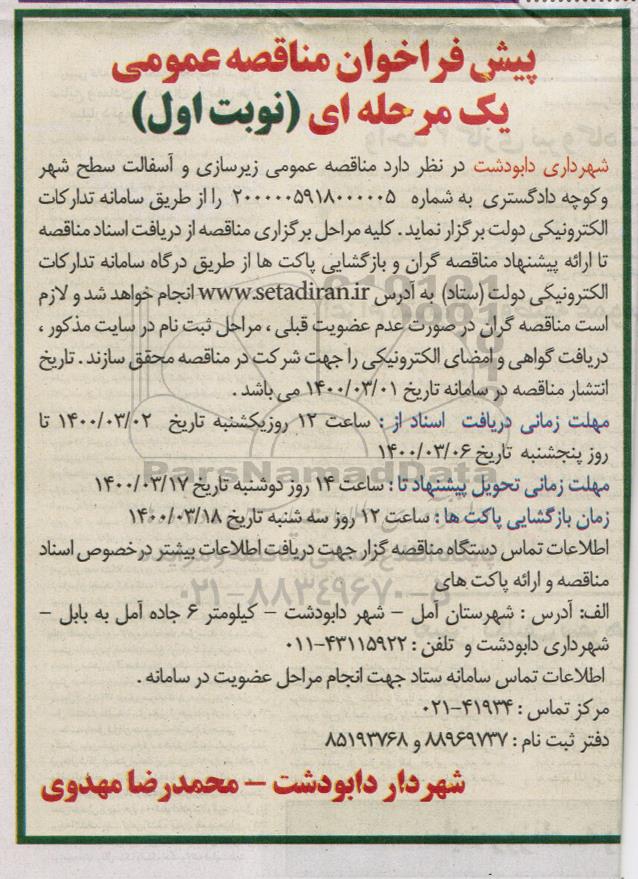 پیش فراخوان مناقصه عمومی
یک مرحله ای (نوبت اول)
شهرداری دابودشت در نظر دارد مناقصه عمومی زیرسازی و آسفالت سطح شهر
وکوچه دادگستری به شماره ۲۰۰۰۰۰۵۹۱۸۰۰۰۰۰۵ را از طریق سامانه تدارکات
الکترونیکی دولت برگزار نماید . کلیه مراحل برگزاری مناقصه از دریافت اسناد مناقصه
تا ارائه پیشنهاد مناقصه گران و بازگشایی پاکت ها از طریق درگاه سامانه تدارکات
الکترونیکی دولت (ستاد) به آدرس www.setadiran.ir انجام خواهد شد و لازم
است مناقصه گران در صورت عدم عضویت قبلی ، مراحل ثبت نام در سایت مذکور ،
دریافت گواهی و امضای الکترونیکی را جهت شرکت در مناقصه محقق سازند . تاریخ
انتشار مناقصه در سامانه تاریخ ۱۴۰۰/۰۳/۰۱ می باشد .
مهلت زمانی دریافت اسناد از : ساعت ۱۲ روزیکشنبه تاریخ ۱۴۰۰/۰۳/۰۲ تا
روز پنجشنبه تاریخ ۱۴۰۰/۰۳/۰۶
مهلت زمانی تحویل پیشنهاد تا : ساعت ۱۴ روز دوشنبه تاریخ ۱۴۰۰/۰۳/۱۷
زمان بازگشایی پاکت ها : ساعت ۱۲ روز سه شنبه تاریخ ۱۴۰۰/۰۳/۱۸
اطلاعات تماس دستگاه مناقصه گزار جهت دریافت اطلاعات بیشتر درخصوص اسناد
مناقصه و ارائه پاکت های
الف: آدرس : شهرستان آمل – شهر دابودشت – کیلومتر ۶ جاده آمل به بابل –
شهرداری دابودشت و تلفن : ۴۳۱۱۵۹۲۲-۰۱۱
اطلاعات تماس سامانه ستاد جهت انجام مراحل عضویت در سامانه .
مرکز تماس : ۴۱۹۳۴-۰۲۱
دفتر ثبت نام : ۸۸۹۶۹۷۳۷ و ۸۵۱۹۳۷۶۸
شهردار دابودشت – محمدرضا مهدوی
ParsNamadData
۰۲۱-۸۸۳۴۹۶۷۰-۵